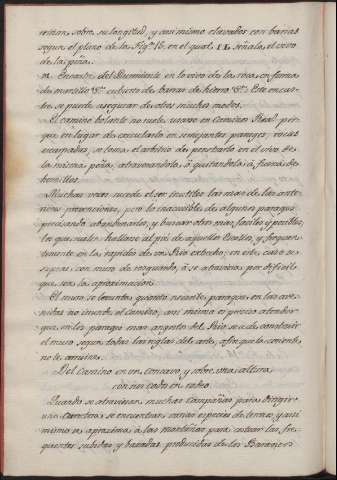 minan, sobre su longitud, y asi mismo clavados con barras
segun el plano de la Fig.ª 16. en el qual 1 L señala el vivo
de la peña.
M. Encastre del Durmiente en lo vivo de la roca, en forma
de martillo &.ª cubierto de barras de hierro &.ª Este encas-
tre se puede asegurar de otros muchos modos.
El camino bolante no suele usarse en Caminos Real, por
que en lugar de executarlo en semejantes parages, rocas
escarpadas, se toma el arbitrio de penetrarlo en el vivo de
la misma peña, atravesandola, ò quitandola à fuerza de
hornillos.
Muchas veces sucede el ser inutiles las mas de las ante-
riores precauciones, pero lo inaccesible de algunos parages
precisando abandonarlos, y buscar otros mas faciles y posibles,
los que suelen hallarse al pié de aquellos Escollos, y frequen-
temente en la rapidez de un Rio estrecho; en este caso se
supera con muro de resguardo, ò se atraviesa por dificil
que sea la aproximacion.
El muro se levanta quanto necesite, para que en las ave-
nidas no inunde el camino; asi mismo es preciso atender
que en los parages mas angostos del Rio se ha de construir
el muro segun todas las reglas del arte, afin que la corriente
no le arruine.
Del Camino en un concavo y sobre una altura
con sus codos en rodeo.
Quando se atraviesan muchas campiñas para dirigir
una Carretera se encuentran varias especies de tierras, y asi
mismo se aproxima à las montañas para evitar las fre-
quentes subidas y baxadas producidas de los Barancos